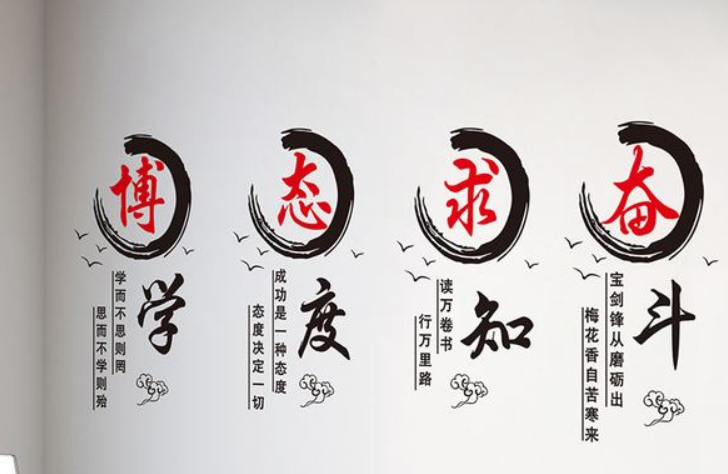 博学
学而不思则罔
思而不学则殆
态度
成功是一种态度
态度决定一切
求知
读万卷书
行万里路
奋斗
宝剑锋从磨砺出
梅花香自苦寒来